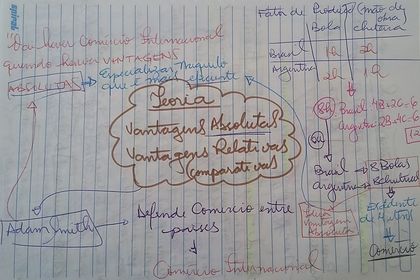 "Vai haver Comércio Internacional
quando houver VANTAGENS
ABSOLUTAS
Especializar naquilo
que é mais eficiente
Teoria
Vantagens Absolutas
Vantagens Relativas
(comparativas)
Adam Smith
Defende Comercio entre
países
Comércio Internacional
Fator de Produção (mão de
obra
Bola
chuteira
Brasil
1h
2h
Argentina
2h
1h
8h
Brasil 4B+2C=6
Argentina 2B+4C=6
Brasil
8 Bolas
Argentina
8 chuteiras
Vantagem
Absoluta
Excedente
Comércio